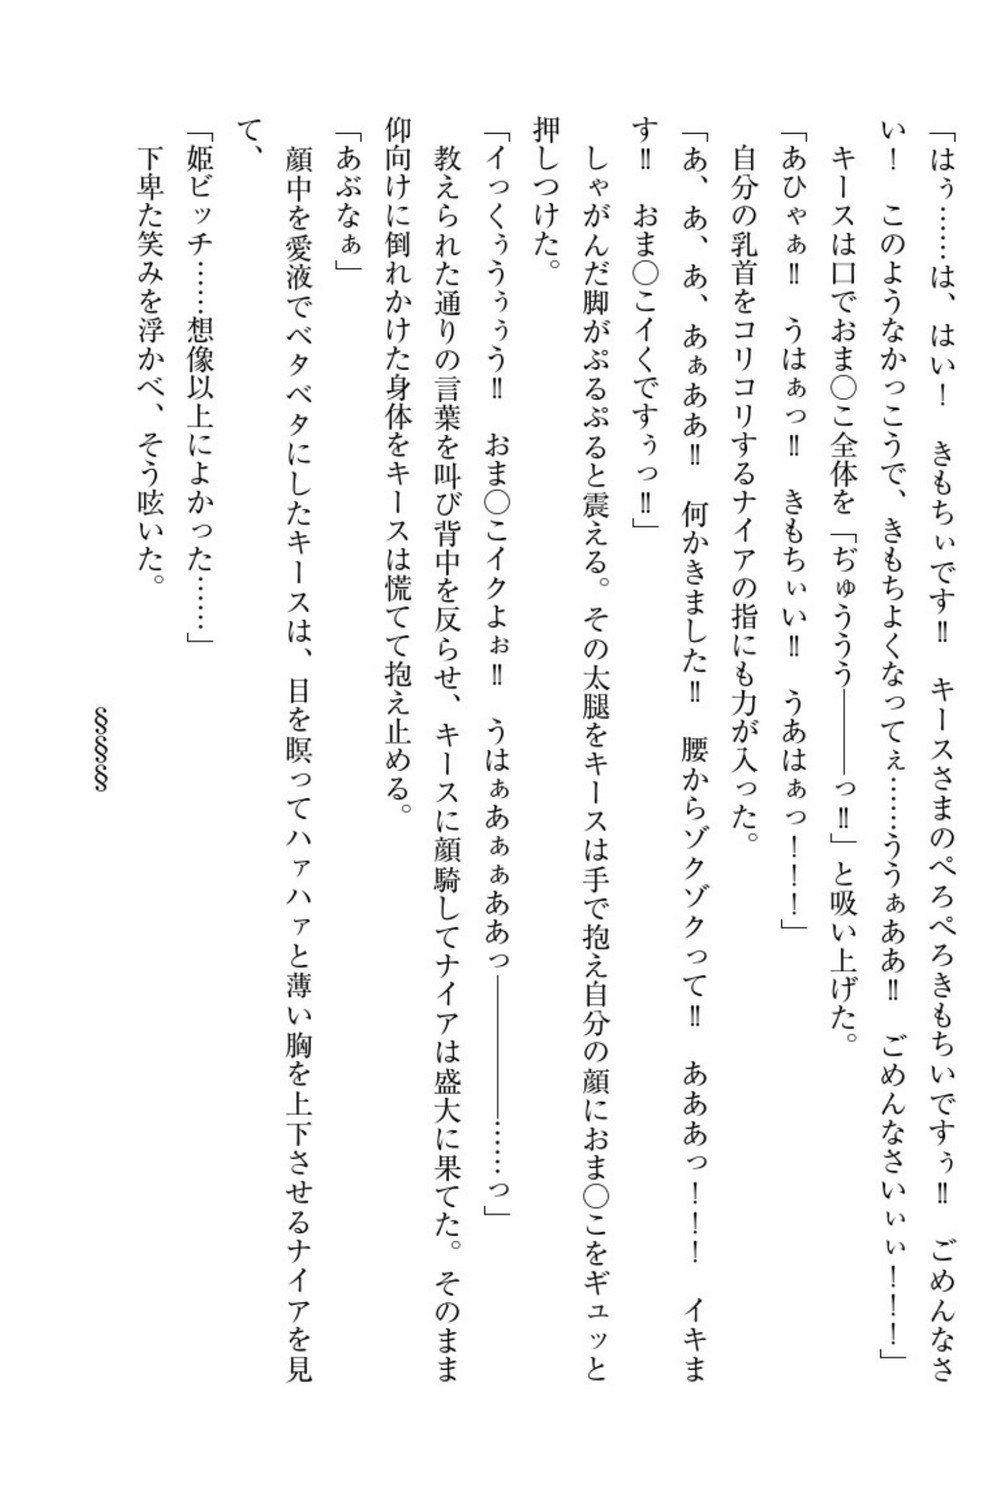 「はぅ……は、はい！　きもちぃです‼　キースさまのぺろぺろきもちいですぅ‼　ごめんなさ
い！　このようなかっこうで、きもちよくなってぇ……ううぁああ‼　ごめんなさいぃぃ！！！」
　キースは口でおま〇こ全体を「ぢゅううう――――っ‼」と吸い上げた。
「あひゃぁ‼　うはぁっ‼　きもちぃい‼　うあはぁっ！！！」
　自分の乳首をコリコリするナイアの指にも力が入った。
「あ、あ、あ、あぁああ‼　何かきました‼　腰からゾクゾクって‼　あああっ！！！　イキま
す‼　おま〇こイくですぅっ‼」
　しゃがんだ脚がぷるぷると震える。その太腿をキースは手で抱え自分の顔におま〇こをギュッと
押しつけた。
「イっくぅうぅぅう‼　おま〇こイクよぉ‼　うはぁあぁぁああっ――――――……っ」
　教えられた通りの言葉を叫び背中を反らせ、キースに顔騎してナイアは盛大に果てた。そのまま
仰向けに倒れかけた身体をキースは慌てて抱え止める。
「あぶなぁ」
　顔中を愛液でベタベタにしたキースは、目を瞑ってハァハァと薄い胸を上下させるナイアを見
て、
「姫ビッチ……想像以上によかった……」
　下卑た笑みを浮かべ、そう呟いた。
§§§§